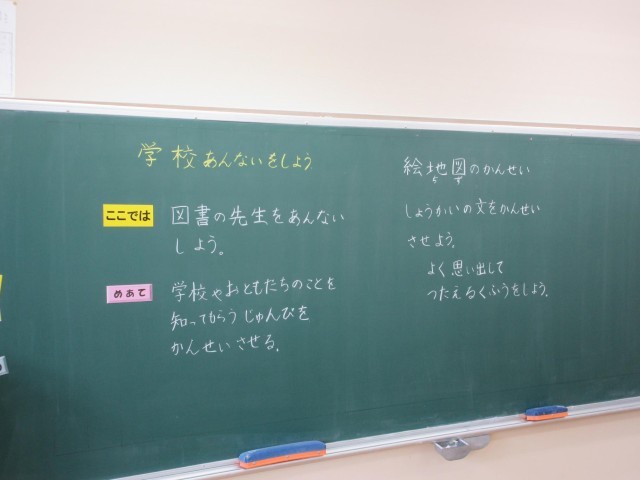 学校あんないをしよう
ここでは
図書の先生をあんない
しよう。
めあて
学校やおともだちのことを
知ってもらうじゅんびを
かんせいさせる。
絵地図のかんせい
ち ず
しょうかいの文をかんせい
させよう。
よく思い出して
つたえるくふうをしよう。